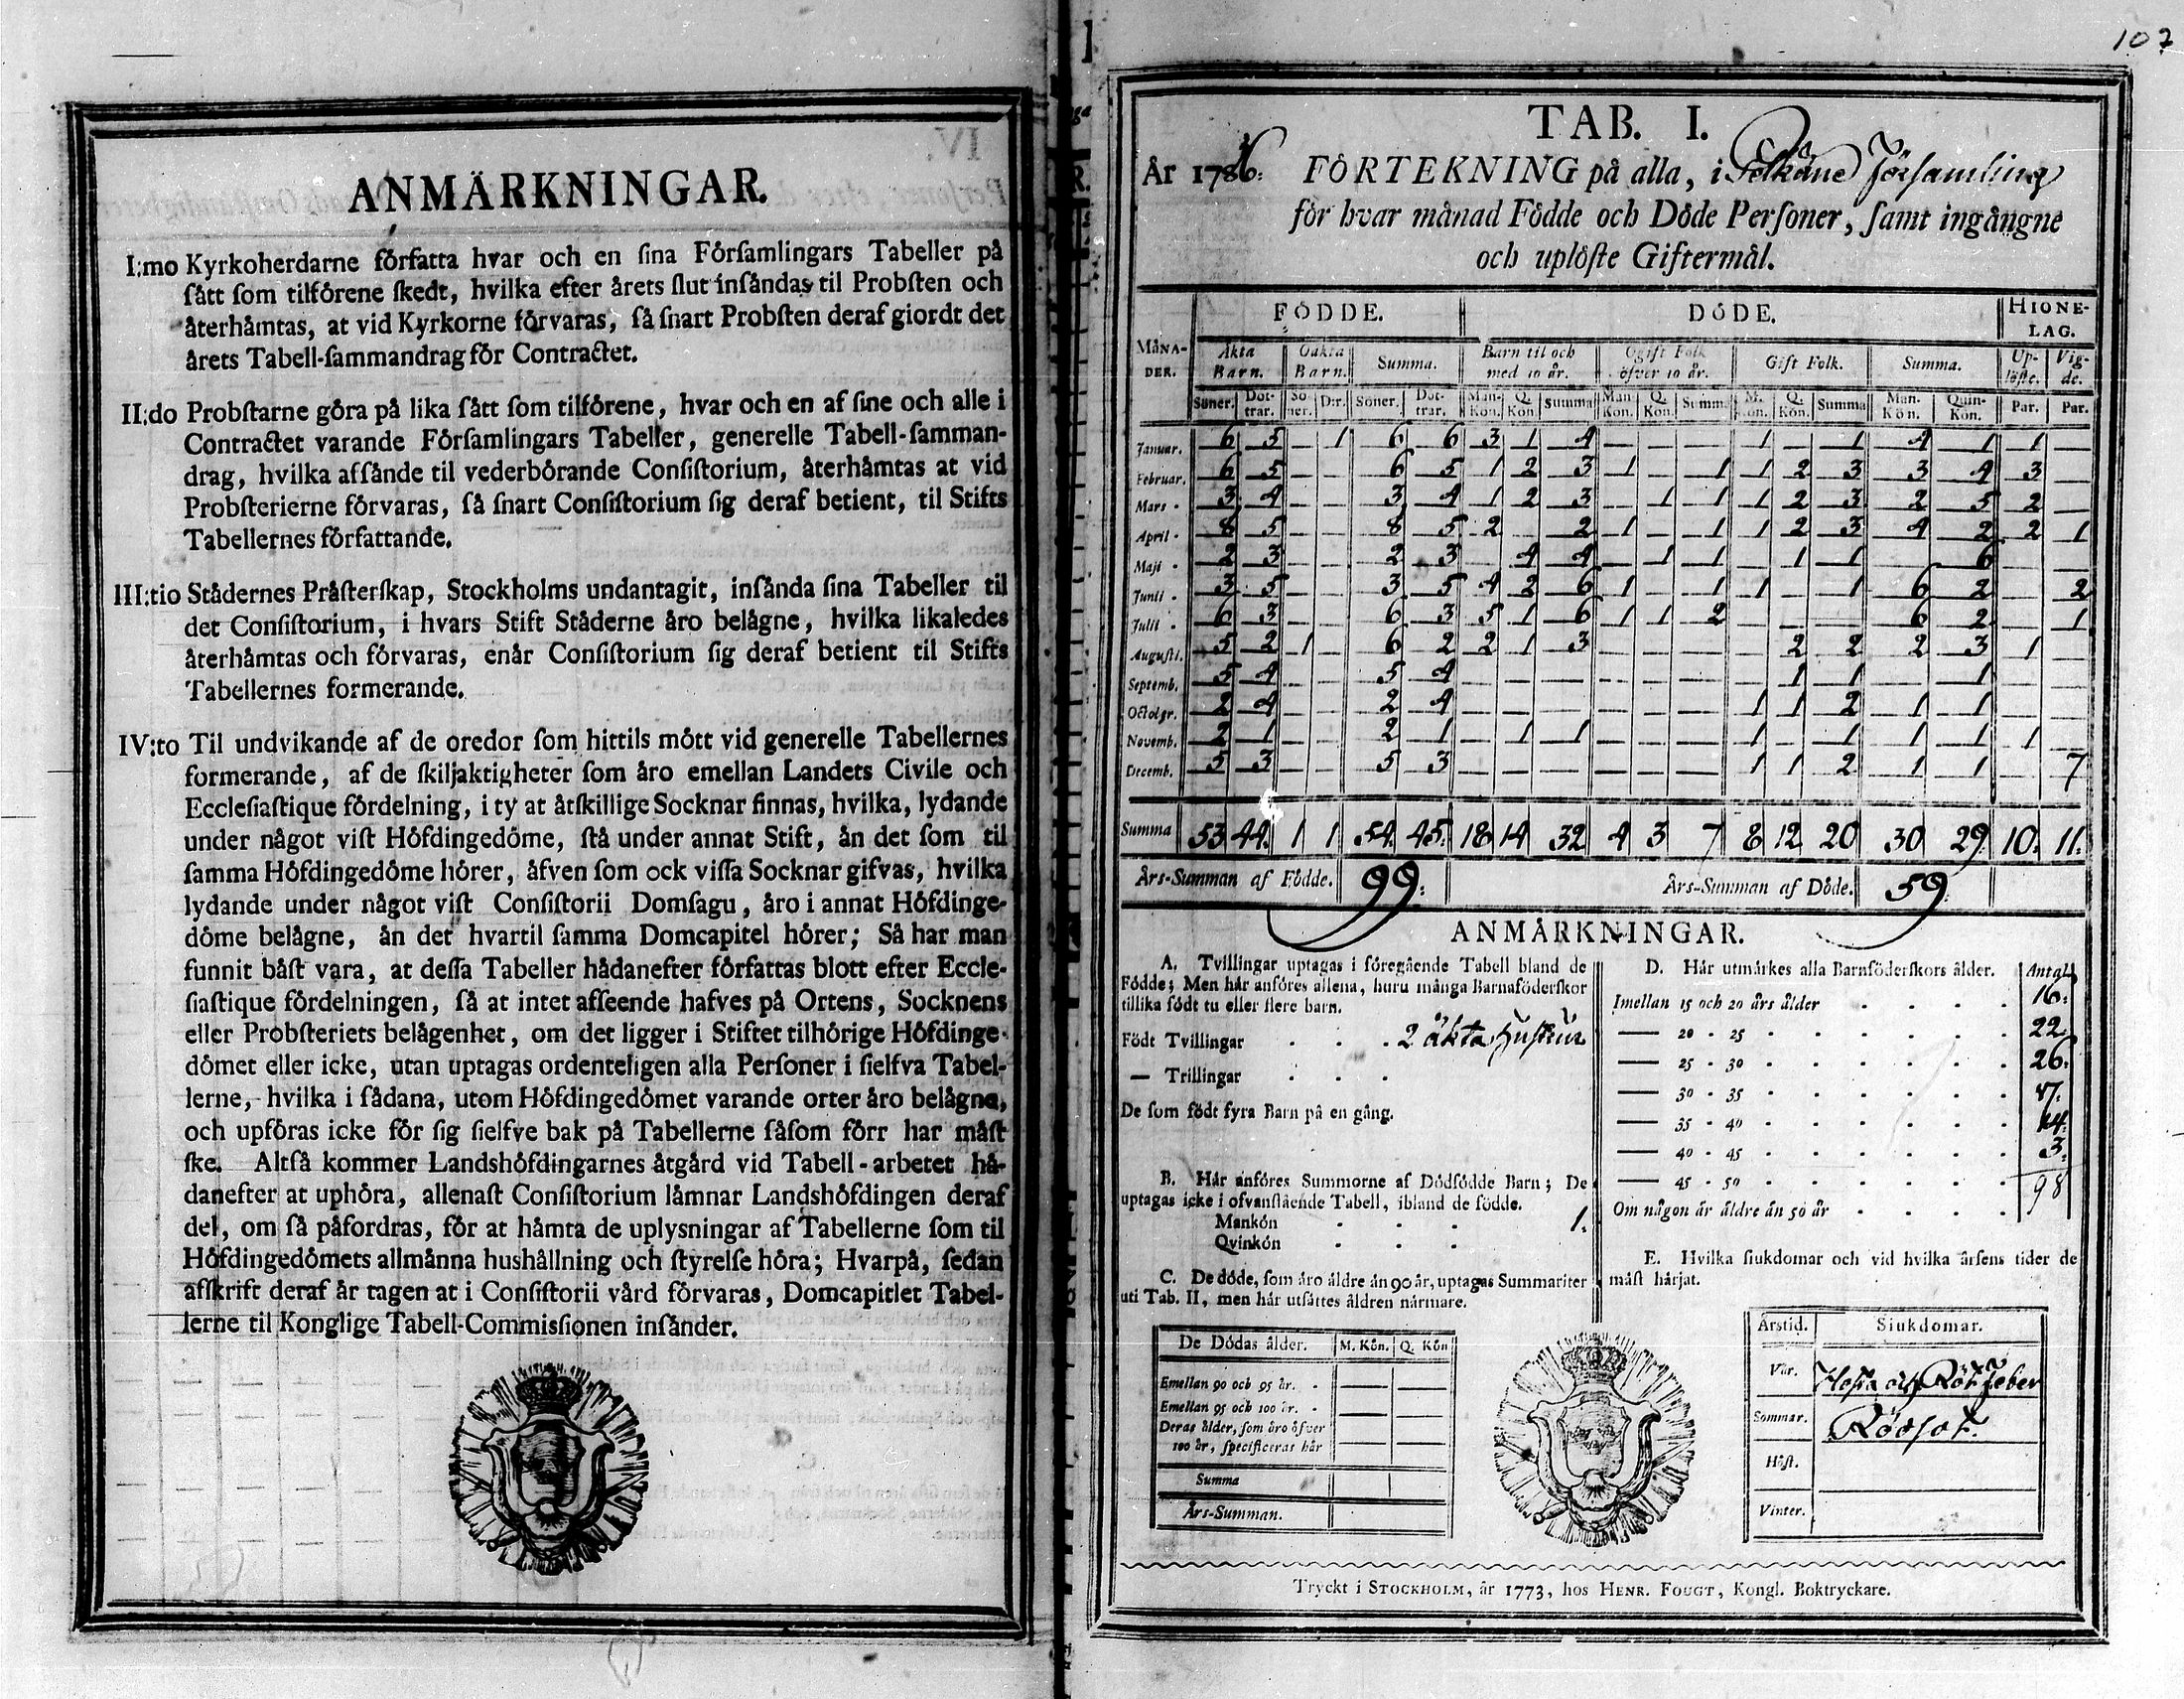 107
ANMÄRKNINGAR.
I:mo Kyrkoherdarne författa hvar och en sina Församlingars Tabeller på
sått som tilförene skedt, hvilka efter årets slut insåndas til Probsten och
återhåmtas, at vid Kyrkorne förvaras, så snart Probsten deraf giordt det
årets Tabell-sammandrag för Contractet.
II:do Probstarne göra på lika sått som tilförene, hvar och en af sine och alle i
Contractet varande Församlingars Tabeller, generelle Tabell-samman-
drag, hvilka afsånde til vederbörande Consistorium, återhåmtas at vid
Probsterierne förvaras, så snart Consistorium sig deraf betient, til Stifts
Tabellernes författande.
III:tio Stådernes Pråsterskap, Stockholms undantagit, insånda sina Tabeller til
det Consistorium, i hvars Stift Ståderne åro belågne, hvilka likaledes
återhåmtas och förvaras, enår Consistorium sig deraf betient til Stifts
Tabellernes formerande.
IV:to Til undvikande af de oredor som hittils mött vid generelle Tabellernes
formerande, af de skiljaktigheter som åro emellan Landets Civile och
Ecclesiastique fördelning, i ty at åtskillige Socknar finnas, hvilka, lydande
under något vist Höfdingedöme, stå under annat Stift, ån det som til
samma Höfdingedöme hörer, åfven som ock vissa Socknar gifvas, hvilka
lydande under något vist Consistorii Domsagu, åro i annat Höfdinge-
döme belågne, ån det hvartil samma Domcapitel hörer; Så har man
funnit båst vara, at dessa Tabeller hådanefter författas blott efter Eccle-
siastique fördelningen, så at intet afseende hafves på Ortens, Socknens
eller Probsteriets belågenhet, om det ligger i Stiftet tilhörige Höfdinge-
dömet eller icke, utan uptagas ordenteligen alla Personer i sielfva Tabel-
lerne, hvilka i sådana, utom Höfdingedömet varande orter åro belågne,
och upföras icke för sig sielfve bak på Tabellerne såsom förr har måst
ske. Altså kommer Landshöfdingarnes åtgård vid Tabell-arbetet hå-
danefter at uphöra, allenast Consistorium låmnar Landshöfdingen deraf
del, om så påfordras, för at håmta de uplysningar af Tabellerne som til
Höfdingedömets allmånna hushållning och styrelse höra; Hvarpå, sedan
afskrift deraf år tagen at i Consistorii vård förvaras, Domcapitlet Tabel-
lerne til Konglige Tabell-Commissionen insånder.
TAB. I.
År 1786. FÖRTEKNING på alla, i Pelkäne Församling
för hvar månad Födde och Döde Personer, samt ingångne
och uplöste Giftermål.
MÅNADER. FÖDDE. DÖDE. HIONELAG.
Åkta Barn. Oåkta Barn. Summa. Barn til och med 10 år. Ogift Folk öfver 10 år. Gift Folk. Summa. Uplöste. Vigde.
Söner. Dottrar. Söner. D:r. Söner. Dottrar. Mankön. Q. Kön. Summa Man Kön. Q. Kön. Summa M. Kön. Q. Kön. Summa Man-Kön. Quin-Kön. Par. Par.
Januar. 6 5 — 1 6 6 3 1 4 — — — 1 — 1 4 1 1 —
Februar. 6 5 — — 6 5 1 2 3 1 — 1 1 2 3 3 4 3 —
Mars 3 4 — — 3 4 1 2 3 — 1 1 1 2 3 2 5 2 —
April 8 5 — — 8 5 2 — 2 1 — 1 1 2 3 4 2 2 1
Maji 2 3 — — 2 3 — 4 4 — 1 1 — 1 1 — 6 — —
Junii 3 5 — — 3 5 4 2 6 1 — 1 1 — 1 6 2 — 2
Julii 6 3 — — 6 3 5 1 6 1 1 2 — — — 6 2 — 1
Augusti. 5 2 1 — 6 2 2 1 3 — — — — 2 2 2 3 1 —
Septemb. 5 4 — — 5 4 — — — — — — — 1 1 — 1 — —
Octobr. 2 4 — — 2 4 — — — — — — 1 1 2 1 1 — —
Novemb. 2 1 — — 2 1 — 1 1 — — — 1 — 1 1 1 1 —
Decemb. 5 3 — — 5 3 — — — — — — 1 1 2 1 1 — 7
Summa 53 44. 1 1 54. 45. 18 14 32 4 3 7 8 12 20 30 29 10. 11.
Års-Summan af Födde. 99. Års-Summan af Döde. 59
ANMÅRKNINGAR.
A. Tvillingar uptagas i föregående Tabell bland de
Födde; Men hår anföres allena, huru många Barnaföderskor
tillika födt tu eller flere barn.
Födt Tvillingar . . . 2 äkta Hustrur
— Trillingar . . .
De som födt fyra Barn på en gång.
B. Hår anföres Summorne af Dödfödde Barn; De
uptagas icke i ofvanstående Tabell, ibland de födde.
Mankön . . . 1.
Qvinkön . . .
C. De döde, som åro åldre ån 90 år, uptagas Summariter
uti Tab. II, men hår utsåttes åldren nårmare.
De Dödas ålder. M. Kön. Q. Kön
Emellan 90 och 95 år. — —
Emellan 95 och 100 år. — —
Deras ålder, som åro öfver
100 år, specificeras hår — —
Summa
Års-Summan.
D. Hår utmårkes alla Barnföderskors ålder. Antal
Imellan 15 och 20 års ålder 16.
— 20 - 25 22
— 25 - 30 26.
— 30 - 35 17.
— 35 - 40 14.
— 40 - 45 3.
— 45 - 50 98
Om någon år åldre ån 50 år
E. Hvilka siukdomar och vid hvilka årsens tider de
måst hårjat.
Årstid. Siukdomar.
Vår. Hosta och Röt Feber
Sommar. Rödsot.
Höst.
Vinter.
Tryckt i STOCKHOLM, år 1773, hos HENR. FOUGT, Kongl. Boktryckare.